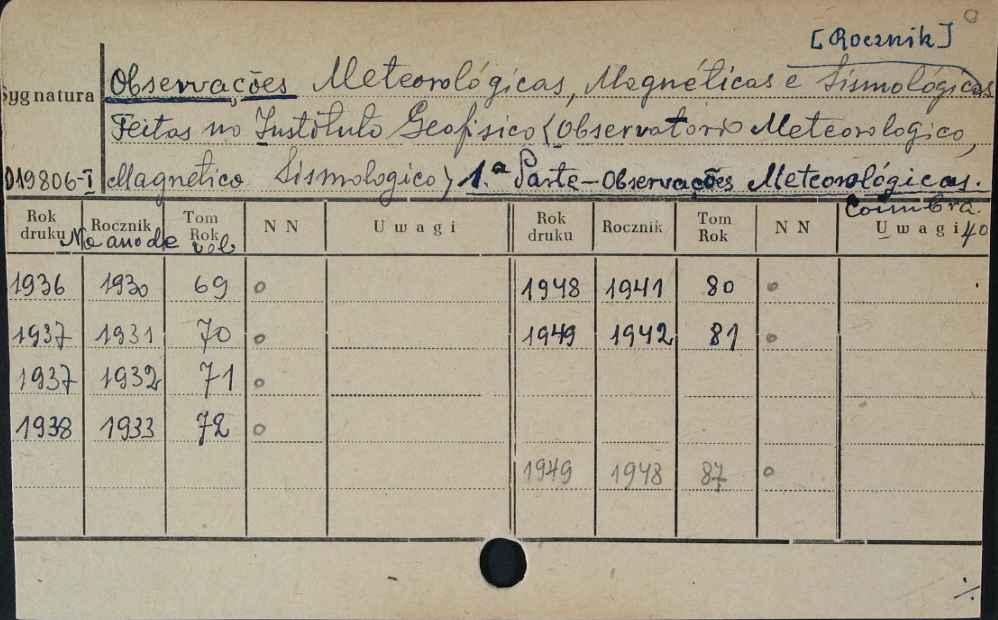 [Rocznik]
Sygnatura Observações Meteorológicas, Magnéticas e Sismológicas
Feitas no Instituto Geofisico (Observatorio Meteorologico,
019806-I Magnetico Sismologico) 1.ª Parte - Observações Meteorológicas.
Coimbra.
Rok druku Rocznik Tom Rok N N Uwagi Rok druku Rocznik Tom Rok N N Uwagi 40
No ano de vol
1936 1930 69 o 1948 1941 80 o
1937 1931 70 o 1949 1942 81 o
1937 1932 71 o
1938 1933 72 o
1949 1948 87 o
./.